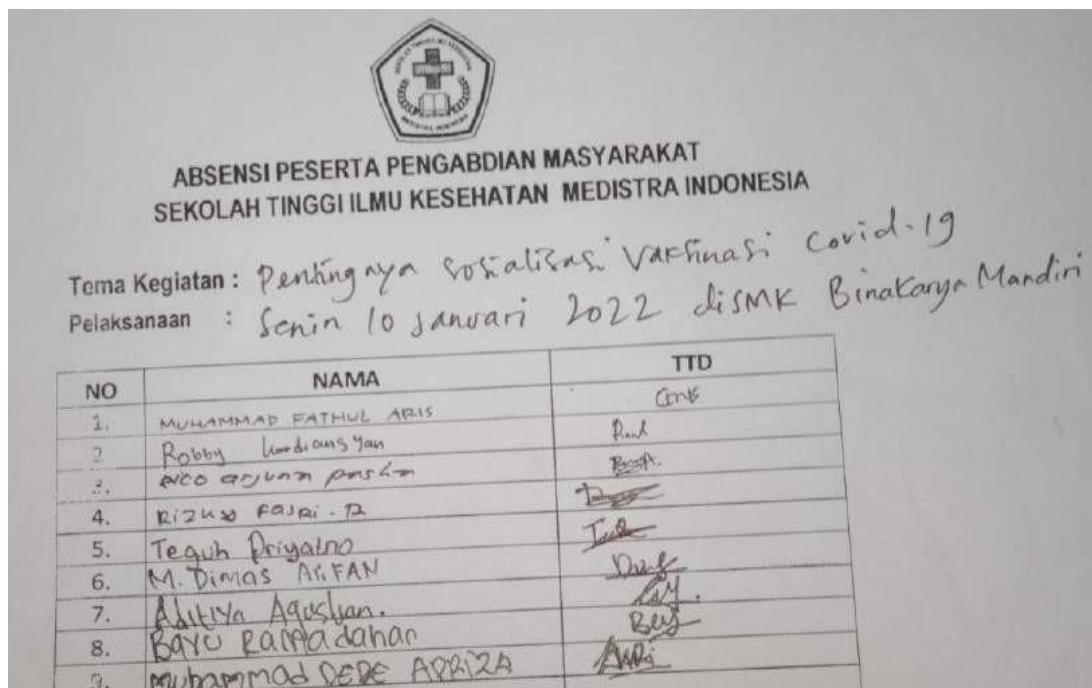 ABSENSI PESERTA PENGABDIAN MASYARAKAT
SEKOLAH TINGGI ILMU KESEHATAN MEDISTRA INDONESIA
Tema Kegiatan : Pentingnya sosialisasi Vaksinasi Covid-19
Pelaksanaan : Senin 10 Januari 2022 di SMK Binakarya Mandiri
NO NAMA TTD
1. MUHAMMAD FATHUL ARIS
2. Robby
3. Rico arjuna pasha
4. Rizky Fajri . R
5. Teguh Priyatno
6. M. Dimas
7. Aditiya Agustian.
8. Bayu Ramadahan
9. Muhammad DEDE APRIZA